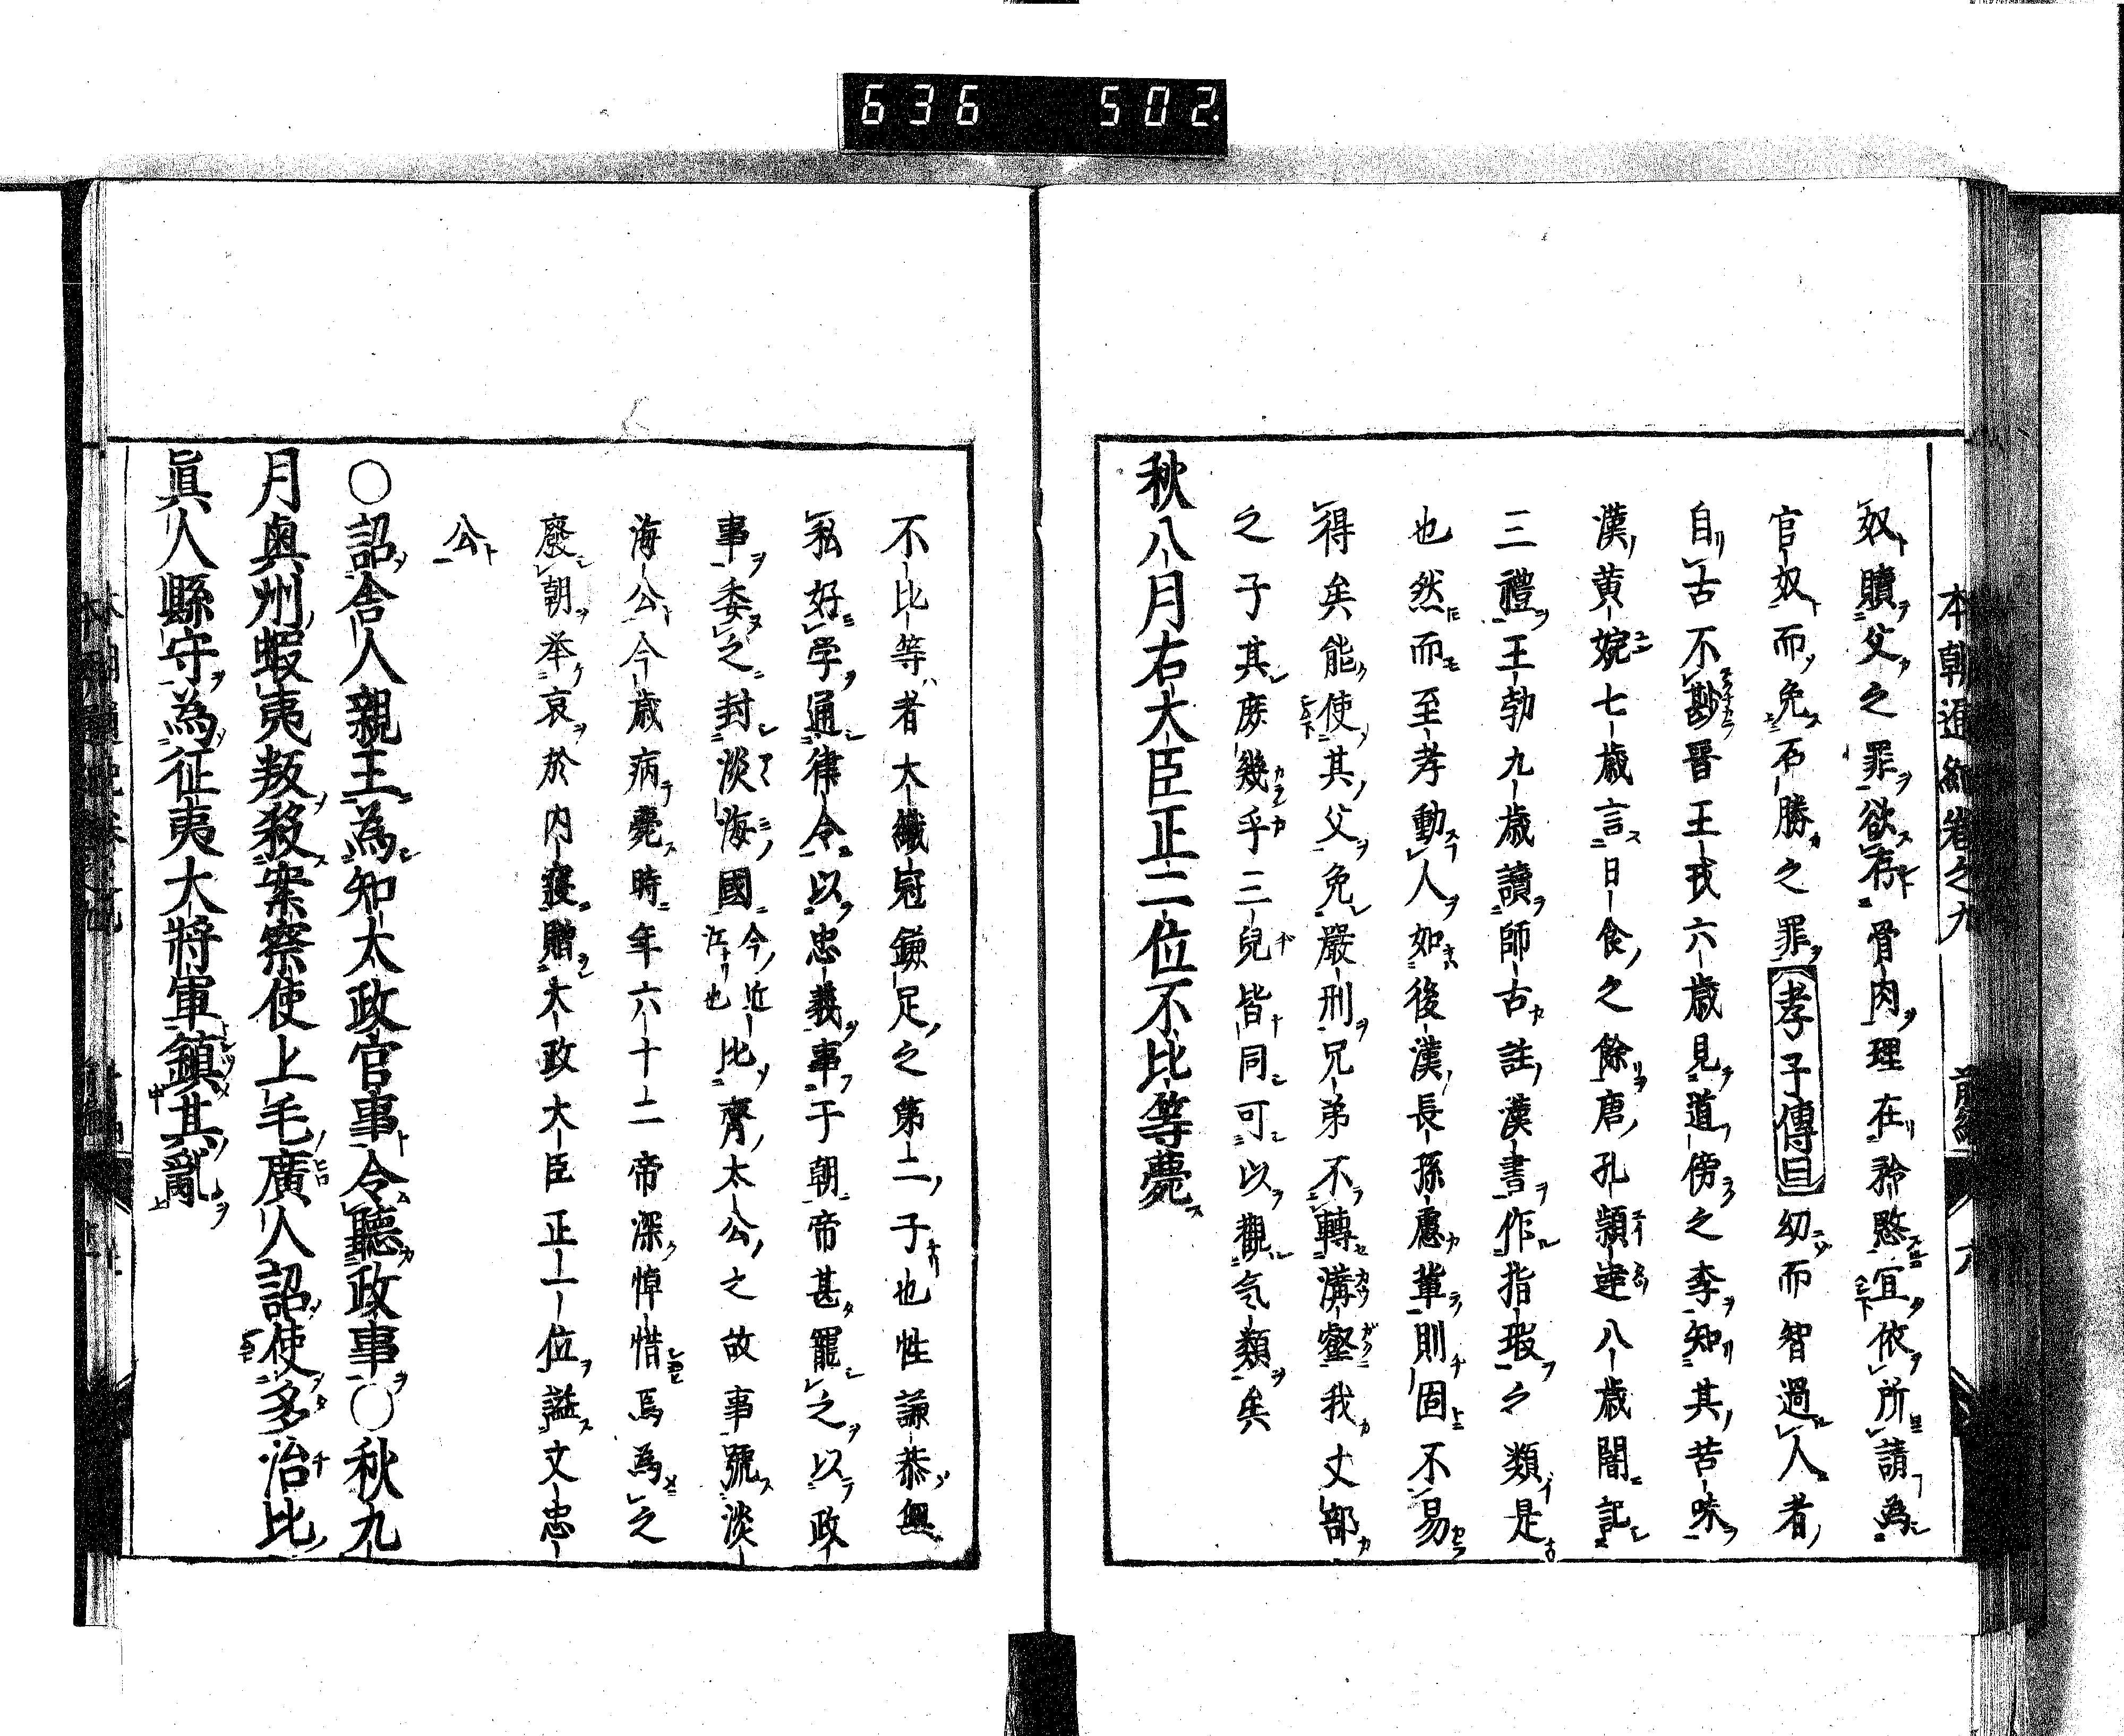 636 502
本朝通紀卷之九 前編
奴贖父之罪欲存骨肉理在矜愍宜依所請為
官奴而免石勝之罪孝子傳曰幼而智過人者
自古不尠晉王戎六歲見道傍之李知其苦味
漢黄婉七歲言日食之餘唐孔穎達八歲闇記
三禮王勃九歲讀師古註漢書作指瑕之類是
也然而至孝動人如後漢長孫慮輩則固不易
得矣能使其父免嚴刑兄弟不轉溝壑我丈部
之子其庶幾乎三兒皆同可以觀気類矣
秋八月右大臣正二位不比等薨
不比等者大織冠鎌足之第二子也性謙恭無
私好学通律令以忠義事于朝帝甚寵之以政
事委之封淡海國今近江也比齊太公之故事號淡
海公今歳病薨時年六十二帝深悼惜焉為之
廢朝举哀於内寝贈太政大臣正一位謚文忠
公
○詔舎人親王為知太政官事令聽政事○秋九
月奥州蝦夷叛殺案察使上毛廣人詔使多治比
眞人縣守為征夷大將軍鎮其亂